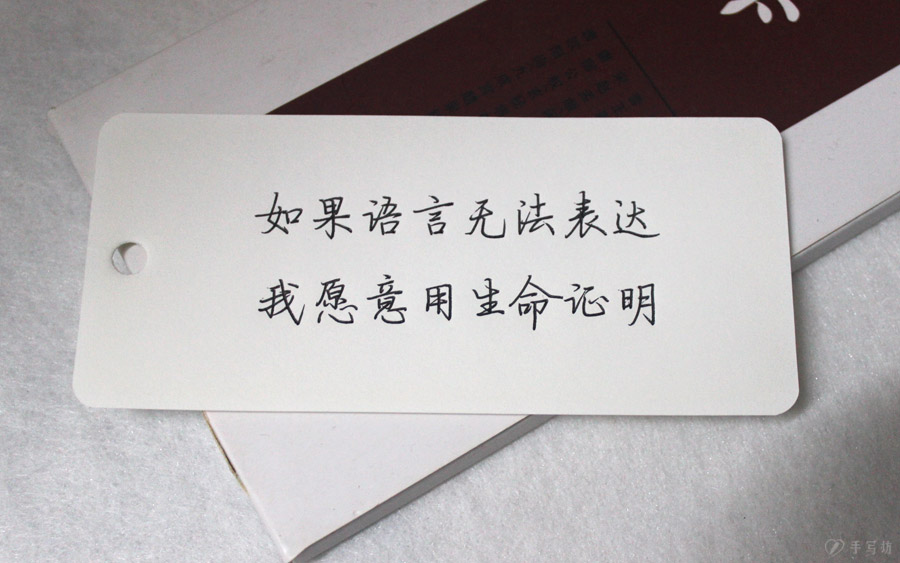 如果语言无法表达
我愿意用生命证明
手写坊